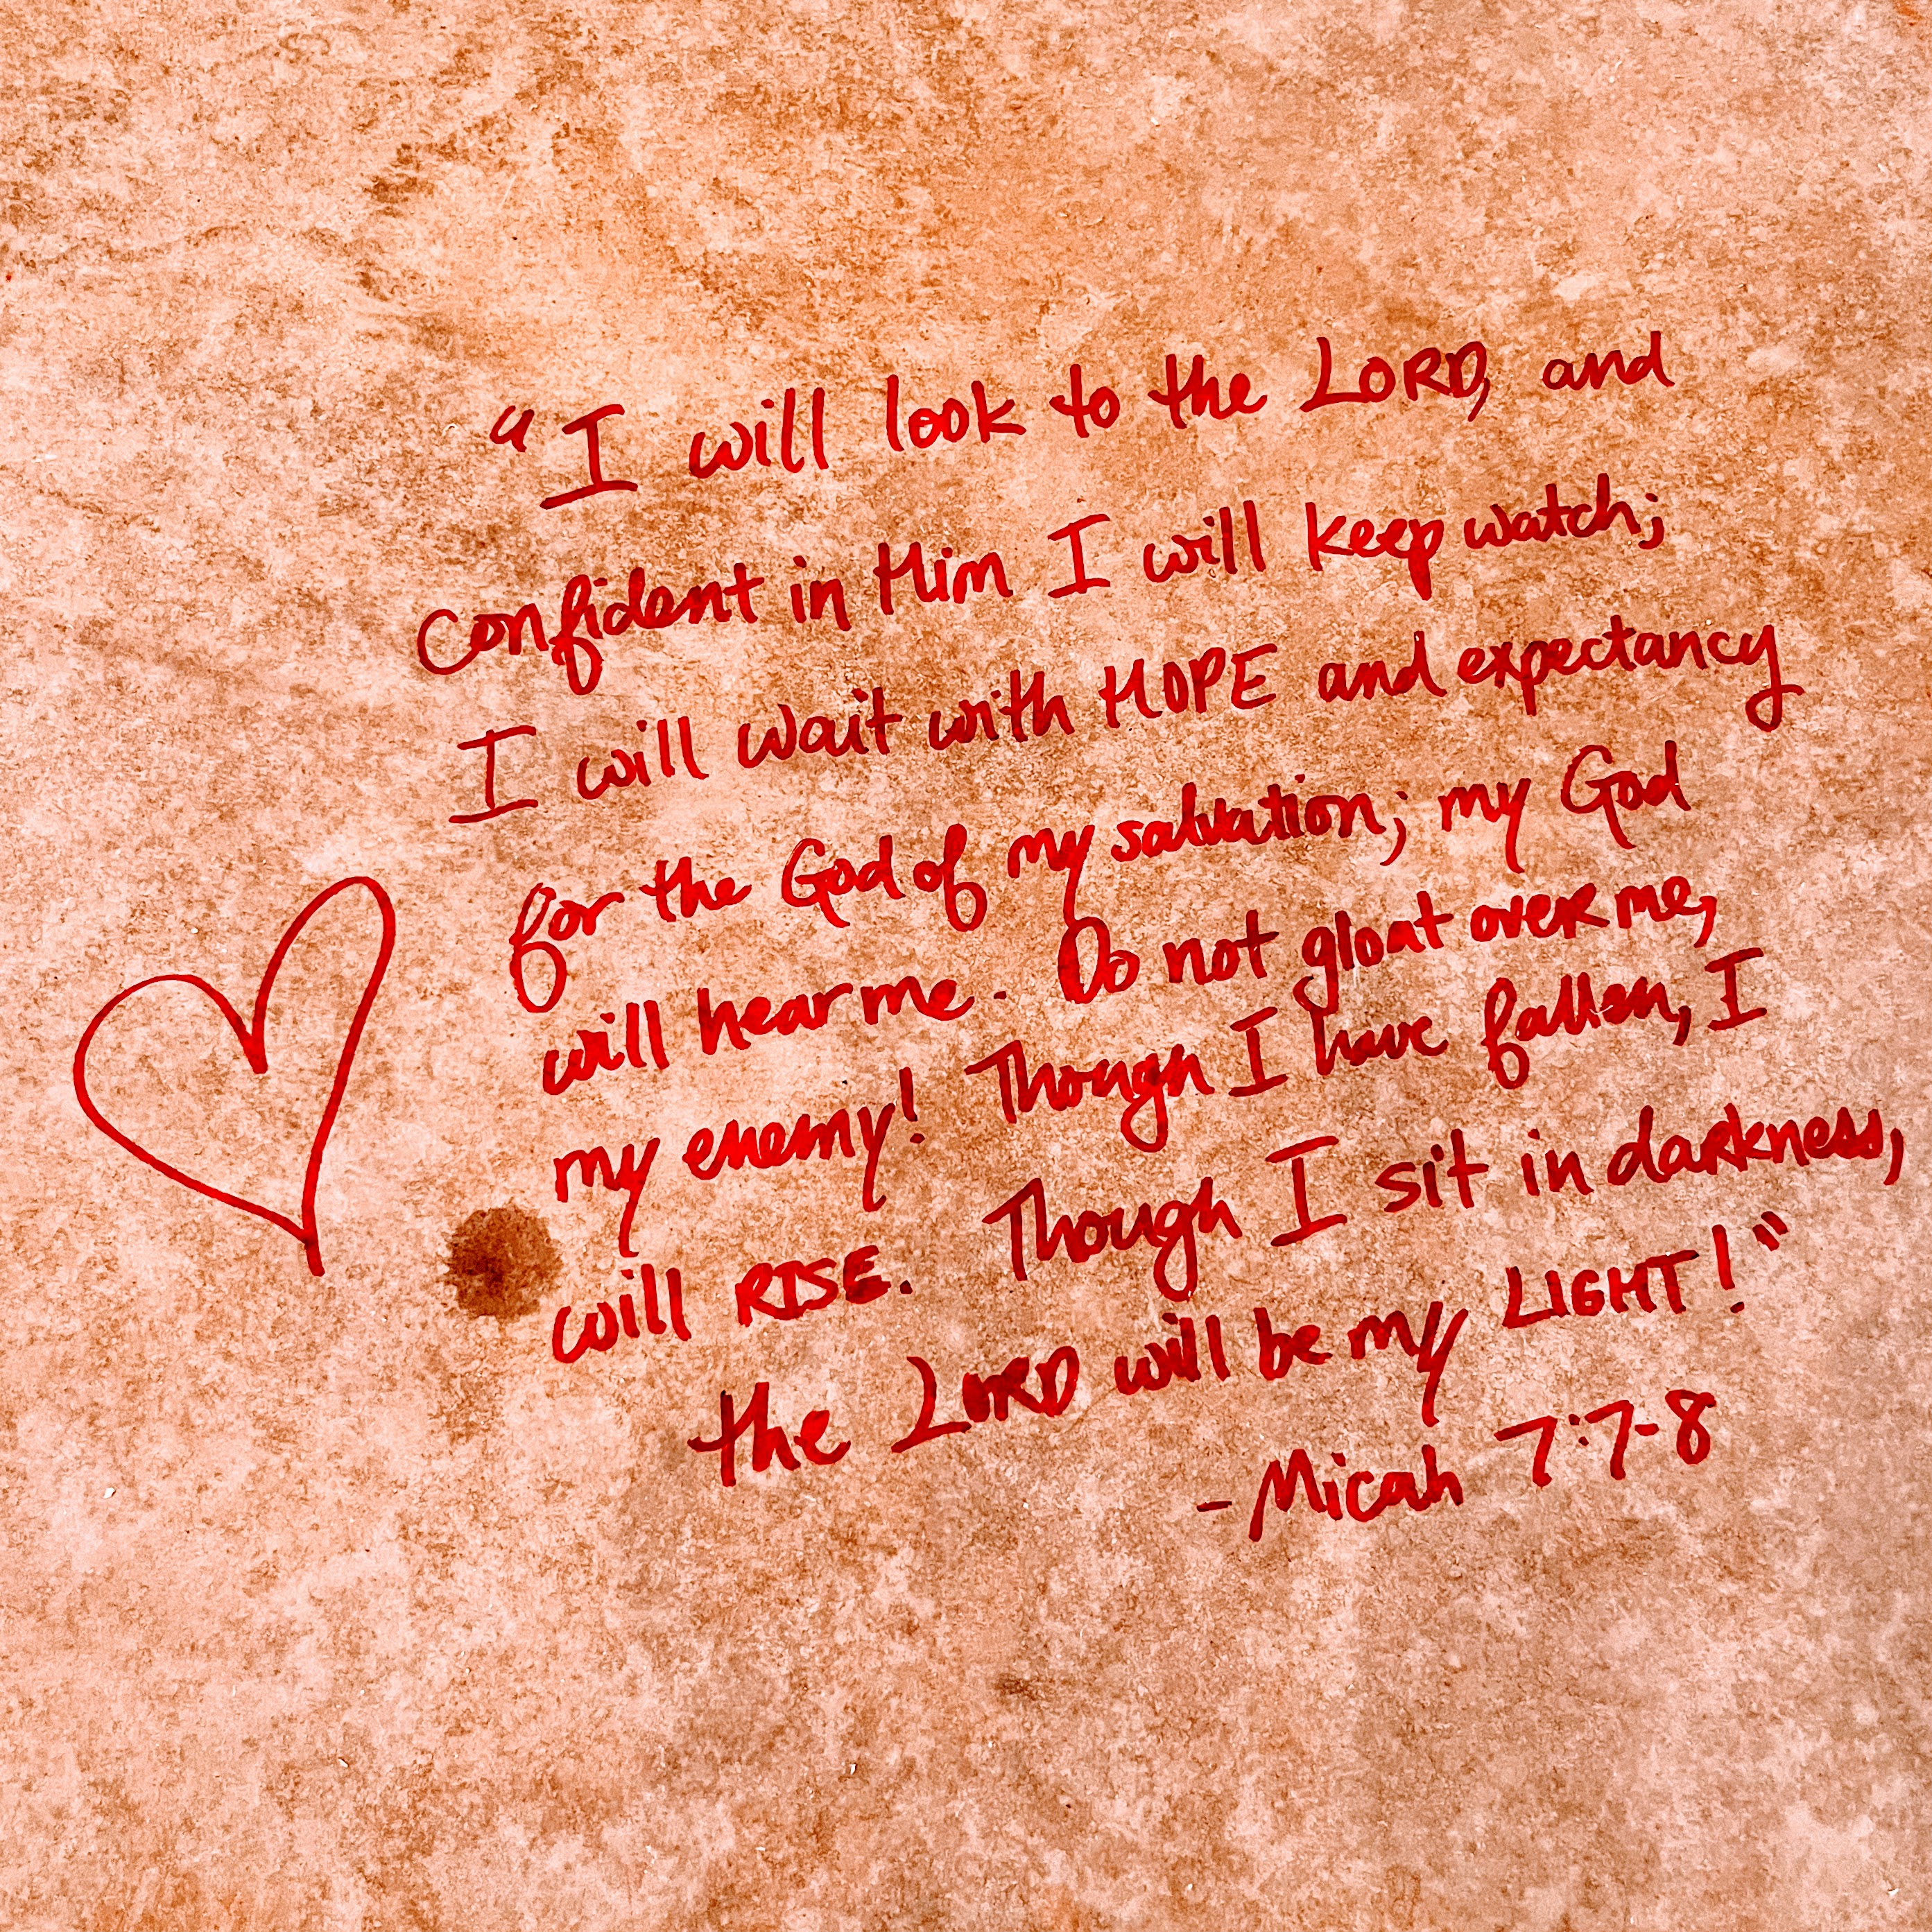 "I will look to the LORD, and
confident in Him I will keep watch;
I will wait with HOPE and expectancy
for the God of my salvation; my God
will hear me. Do not gloat over me,
my enemy! Though I have fallen, I
will RISE. Though I sit in darkness,
the LORD will be my LIGHT!"
- Micah 7:7-8